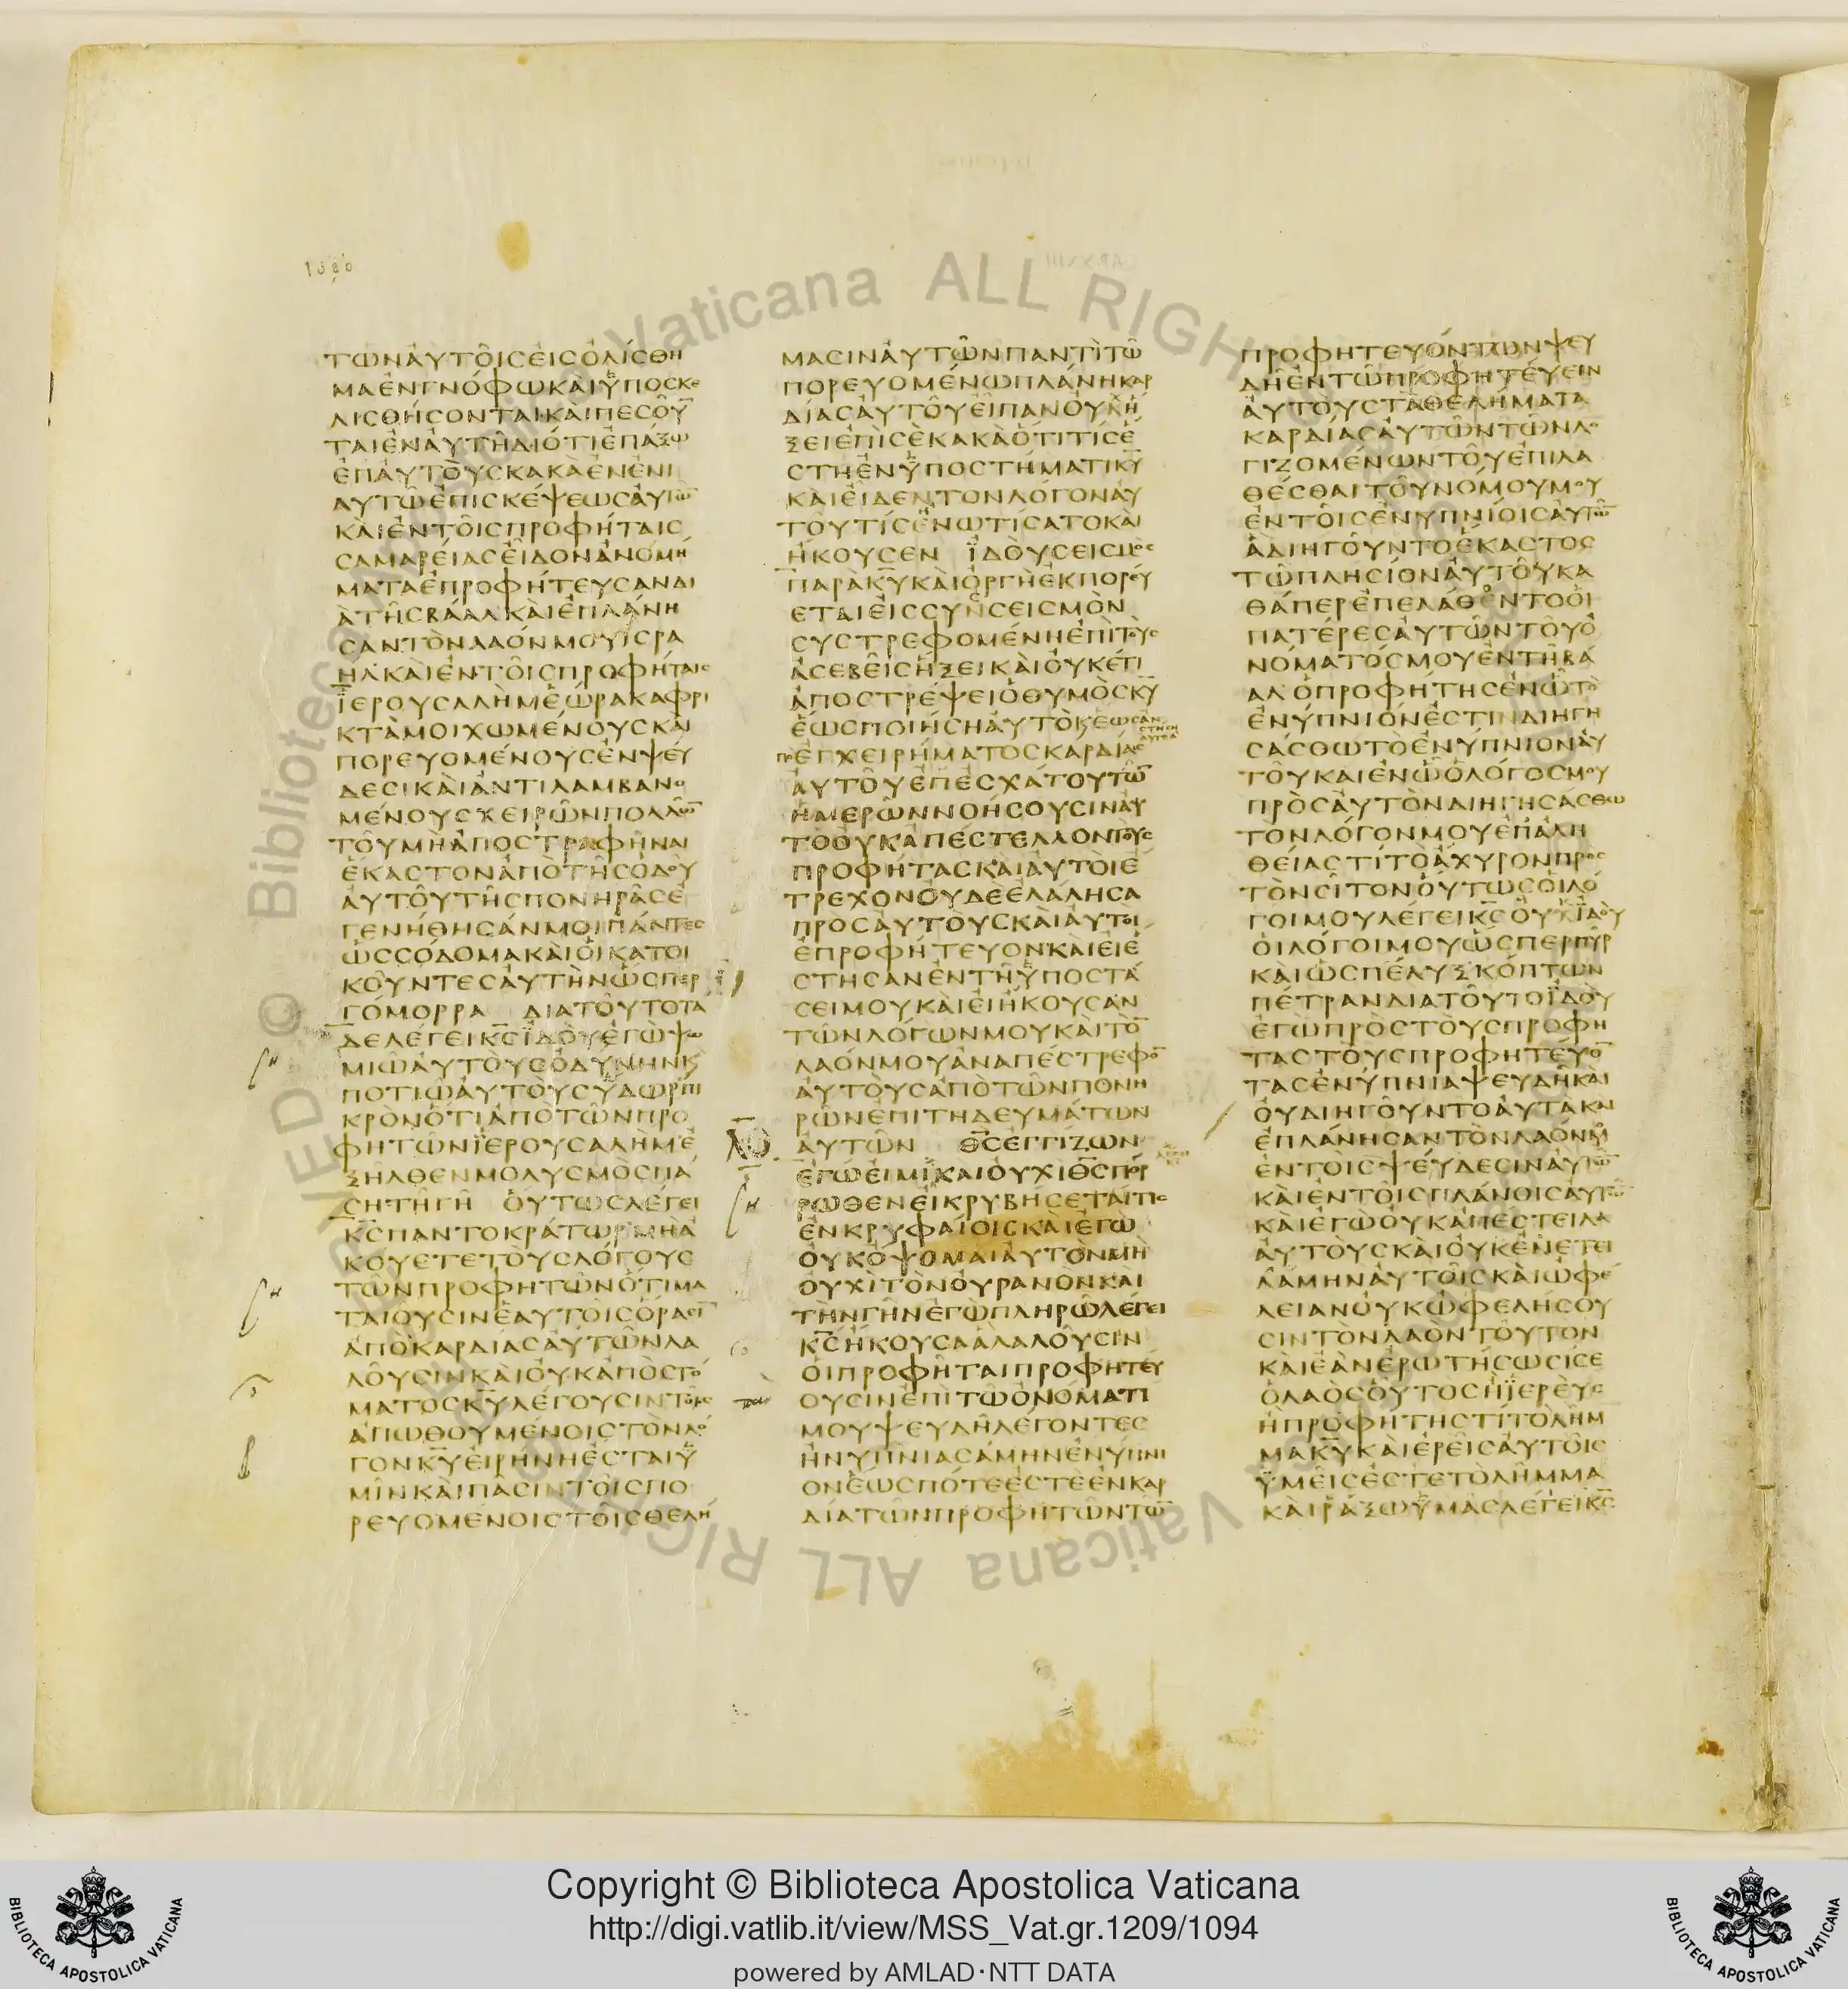 1080
ΤΩΝΑΥΤΟΙϹΕΙϹΟΛΙϹΘΗ
ΜΑΕΝΓΝΟΦΩΚΑΙΥΠΟϹΚΕ
ΛΙϹΘΗϹΟΝΤΑΙΚΑΙΠΕϹΟΥ̅
ΤΑΙΕΝΑΥΤΗΔΙΟΤΙΕΠΑΞΩ
ΕΠΑΥΤΟΥϹΚΑΚΑΕΝΕΝΙ
ΑΥΤΩΕΠΙϹΚΕΨΕΩϹΑΥΤΩ̅
ΚΑΙΕΝΤΟΙϹΠΡΟΦΗΤΑΙϹ
ϹΑΜΑΡΕΙΑϹΕΙΔΟΝΑΝΟΜΗ
ΜΑΤΑΕΠΡΟΦΗΤΕΥϹΑΝΔΙ
ΑΤΗϹΒΑΑΛΚΑΙΕΠΛΑΝΗ
ϹΑΝΤΟΝΛΑΟΝΜΟΥΙϹΡΑ
ΗΛΚΑΙΕΝΤΟΙϹΠΡΟΦΗΤΑΙϹ
ΪΕΡΟΥϹΑΛΗΜΕΩΡΑΚΑΦΡΙ
ΚΤΑΜΟΙΧΩΜΕΝΟΥϹΚΑΙ
ΠΟΡΕΥΟΜΕΝΟΥϹΕΝΨΕΥ
ΔΕϹΙΚΑΙΑΝΤΙΛΑΜΒΑΝΟ
ΜΕΝΟΥϹΧΕΙΡΩΝΠΟΛΛΩ̅
ΤΟΥΜΗΑΠΟϹΤΡΑΦΗΝΑΙ
ΕΚΑϹΤΟΝΑΠΟΤΗϹΟΔΟΥ
ΑΥΤΟΥΤΗϹΠΟΝΗΡΑϹΕ
ΓΕΝΗΘΗϹΑΝΜΟΙΠΑΝΤΕϹ
ΩϹϹΟΔΟΜΑΚΑΙΟΙΚΑΤΟΙ
ΚΟΥΝΤΕϹΑΥΤΗΝΩϹΠΕΡ
ΓΟΜΟΡΡΑ ΔΙΑΤΟΥΤΟΤΑ
ΔΕΛΕΓΕΙΚ̅ϹΪΔΟΥΕΓΩΨΩ
ΜΙΩΑΥΤΟΥϹΟΔΥΝΗΝΚ
ΠΟΤΙΩΑΥΤΟΥϹΥΔΩΡΠΙ
ΚΡΟΝΟΤΙΑΠΟΤΩΝΠΡΟ
ΦΗΤΩΝΪΕΡΟΥϹΑΛΗΜΕ
ΞΗΛΘΕΝΜΟΛΥϹΜΟϹΠΑ
ϹΗΤΗΓΗ ΟΥΤΩϹΛΕΓΕΙ
Κ̅ϹΠΑΝΤΟΚΡΑΤΩΡΜΗΑ
ΚΟΥΕΤΕΤΟΥϹΛΟΓΟΥϹ
ΤΩΝΠΡΟΦΗΤΩΝΟΤΙΜΑ
ΤΑΙΟΥϹΙΝΕΑΥΤΟΙϹΟΡΑϹΙ̅
ΑΠΟΚΑΡΔΙΑϹΑΥΤΩΝΛΑ
ΛΟΥϹΙΝΚΑΙΟΥΚΑΠΟϹΤΟ
ΜΑΤΟϹΚ̅ΥΛΕΓΟΥϹΙΝΤΟΙϹ
ΑΠΩΘΟΥΜΕΝΟΙϹΤΟΝΛΟ
ΓΟΝΚ̅ΥΕΙΡΗΝΗΕϹΤΑΙΥ
ΜΙΝΚΑΙΠΑϹΙΝΤΟΙϹΠΟ
ΡΕΥΟΜΕΝΟΙϹΤΟΙϹΘΕΛΗ
ΜΑϹΙΝΑΥΤΩΝΠΑΝΤΙΤΩ
ΠΟΡΕΥΟΜΕΝΩΠΛΑΝΗΚΑΡ
ΔΙΑϹΑΥΤΟΥΕΙΠΑΝΟΥΧΗ
ΞΕΙΕΠΙϹΕΚΑΚΑΟΤΙΤΙϹΕ
ϹΤΗΕΝΥΠΟϹΤΗΜΑΤΙΚ̅Υ
ΚΑΙΕΙΔΕΝΤΟΝΛΟΓΟΝΑΥ
ΤΟΥΤΙϹΕΝΩΤΙϹΑΤΟΚΑΙ
ΗΚΟΥϹΕΝ ΪΔΟΥϹΕΙϹΜΟϹ
ΠΑΡΑΚ̅ΥΚΑΙΟΡΓΗΕΚΠΟΡΕΥ
ΕΤΑΙΕΙϹϹΥΝϹΕΙϹΜΟΝ
ϹΥϹΤΡΕΦΟΜΕΝΗΕΠΙΤΟΥϹ
ΑϹΕΒΕΙϹΗΞΕΙΚΑΙΟΥΚΕΤΙ
ΑΠΟϹΤΡΕΨΕΙΟΘΥΜΟϹΚ̅Υ
ΕΩϹΠΟΙΗϹΗΑΥΤΟΚΕΩϹΑΝ
ϹΤΗϹΗ
ΑΥΤΟΑ
ΠΟΕΓΧΕΙΡΗΜΑΤΟϹΚΑΡΔΙΑϹ
ΑΥΤΟΥΕΠΕϹΧΑΤΟΥΤΩ̅
ΗΜΕΡΩΝΝΟΗϹΟΥϹΙΝΑΥ
ΤΟΟΥΚΑΠΕϹΤΕΛΛΟΝΤΟΥϹ
ΠΡΟΦΗΤΑϹΚΑΙΑΥΤΟΙΕ
ΤΡΕΧΟΝΟΥΔΕΕΛΑΛΗϹΑ
ΠΡΟϹΑΥΤΟΥϹΚΑΙΑΥΤΟΙ
ΕΠΡΟΦΗΤΕΥΟΝΚΑΙΕΙΕ
ϹΤΗϹΑΝΕΝΤΗΥΠΟϹΤΑ
ϹΕΙΜΟΥΚΑΙΕΙΗΚΟΥϹΑΝ
ΤΩΝΛΟΓΩΝΜΟΥΚΑΙΤΟ̅
ΛΑΟΝΜΟΥΑΝΑΠΕϹΤΡΕΦΟ̅
ΑΥΤΟΥϹΑΠΟΤΩΝΠΟΝΗ
ΡΩΝΕΠΙΤΗΔΕΥΜΑΤΩΝ
ΑΥΤΩΝ Θ̅ϹΕΓΓΙΖΩΝ
ΕΓΩΕΙΜΙΚΑΙΟΥΧΙΘ̅ϹΠΟΡ
ΡΩΘΕΝΕΙΚΡΥΒΗϹΕΤΑΙΤΙϹ
ΕΝΚΡΥΦΑΙΟΙϹΚΑΙΕΓΩ
ΟΥΚΟΨΟΜΑΙΑΥΤΟΝΜΗ
ΟΥΧΙΤΟΝΟΥΡΑΝΟΝΚΑΙ
ΤΗΝΓΗΝΕΓΩΠΛΗΡΩΛΕΓΕΙ
Κ̅ϹΗΚΟΥϹΑΑΛΑΛΟΥϹΙΝ
ΟΙΠΡΟΦΗΤΑΙΠΡΟΦΗΤΕΥ
ΟΥϹΙΝΕΠΙΤΩΟΝΟΜΑΤΙ
ΜΟΥΨΕΥΔΗΛΕΓΟΝΤΕϹ
ΗΝΥΠΝΙΑϹΑΜΗΝΕΝΥΠΝΙ
ΟΝΕΩϹΠΟΤΕΕϹΤΕΕΝΚΑΡ
ΔΙΑΤΩΝΠΡΟΦΗΤΩΝΤΩ̅
ΠΡΟΦΗΤΕΥΟΝΤΩΝΨΕΥ
ΔΗΕΝΤΩΠΡΟΦΗΤΕΥΕΙΝ
ΑΥΤΟΥϹΤΑΘΕΛΗΜΑΤΑ
ΚΑΡΔΙΑϹΑΥΤΩΝΤΩΝΛΟ
ΓΙΖΟΜΕΝΩΝΤΟΥΕΠΙΛΑ
ΘΕϹΘΑΙΤΟΥΝΟΜΟΥΜΟΥ
ΕΝΤΟΙϹΕΝΥΠΝΙΟΙϹΑΥΤΩ̅
ΑΔΙΗΓΟΥΝΤΟΕΚΑϹΤΟϹ
ΤΩΠΛΗϹΙΟΝΑΥΤΟΥΚΑ
ΘΑΠΕΡΕΠΕΛΑΘΕΝΤΟΟΙ
ΠΑΤΕΡΕϹΑΥΤΩΝΤΟΥΟ
ΝΟΜΑΤΟϹΜΟΥΕΝΤΗΒΑ
ΑΛΟΠΡΟΦΗΤΗϹΕΝΩΤΟ
ΕΝΥΠΝΙΟΝΕϹΤΙΝΔΙΗΓΗ
ϹΑϹΘΩΤΟΕΝΥΠΝΙΟΝΑΥ
ΤΟΥΚΑΙΕΝΩΟΛΟΓΟϹΜΟΥ
ΠΡΟϹΑΥΤΟΝΔΙΗΓΗϹΑϹΘΩ
ΤΟΝΛΟΓΟΝΜΟΥΕΠΑΛΗ
ΘΕΙΑϹΤΙΤΟΑΧΥΡΟΝΠΡΟϹ
ΤΟΝϹΙΤΟΝΟΥΤΩϹΟΙΛΟ
ΓΟΙΜΟΥΛΕΓΕΙΚ̅ϹΟΥΧΙΔΟΥ
ΟΙΛΟΓΟΙΜΟΥΩϹΠΕΡΠΥΡ
ΚΑΙΩϹΠΕΛΥΞΚΟΠΤΩΝ
ΠΕΤΡΑΝΔΙΑΤΟΥΤΟΪΔΟΥ
ΕΓΩΠΡΟϹΤΟΥϹΠΡΟΦΗ
ΤΑϹΤΟΥϹΠΡΟΦΗΤΕΥΟ̅
ΤΑϹΕΝΥΠΝΙΑΨΕΥΔΗΚΑΙ
ΟΥΔΙΗΓΟΥΝΤΟΑΥΤΑΚΑΙ
ΕΠΛΑΝΗϹΑΝΤΟΝΛΑΟΝΜΟΥ
ΕΝΤΟΙϹΨΕΥΔΕϹΙΝΑΥΤΩ̅
ΚΑΙΕΝΤΟΙϹΠΛΑΝΟΙϹΑΥΤΩ̅
ΚΑΙΕΓΩΟΥΚΑΠΕϹΤΕΙΛΑ
ΑΥΤΟΥϹΚΑΙΟΥΚΕΝΕΤΕΙ
ΛΑΜΗΝΑΥΤΟΙϹΚΑΙΩΦΕ
ΛΕΙΑΝΟΥΚΩΦΕΛΗϹΟΥ
ϹΙΝΤΟΝΛΑΟΝΤΟΥΤΟΝ
ΚΑΙΕΑΝΕΡΩΤΗϹΩϹΙϹΕ
ΟΛΑΟϹΟΥΤΟϹΗΪΕΡΕΥϹ
ΗΠΡΟΦΗΤΗϹΤΙΤΟΛΗΜ
ΜΑΚ̅ΥΚΑΙΕΡΕΙϹΑΥΤΟΙϹ
ΫΜΕΙϹΕϹΤΕΤΟΛΗΜΜΑ
ΚΑΙΡΑΞΩΥΜΑϹΛΕΓΕΙΚ̅Ϲ
Copyright © Biblioteca Apostolica Vaticana
http://digi.vatlib.it/view/MSS_Vat.gr.1209/1094
powered by AMLAD·NTT DATA
BIBLIOTECA APOSTOLICA VATICANA
BIBLIOTECA APOSTOLICA VATICANA